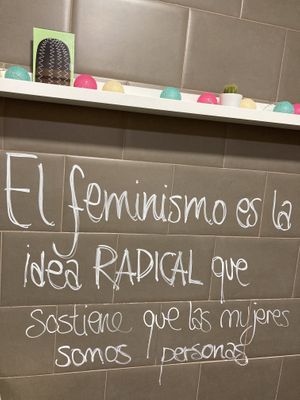 El feminismo es la
idea RADICAL que
sostiene que las mujeres
somos personas